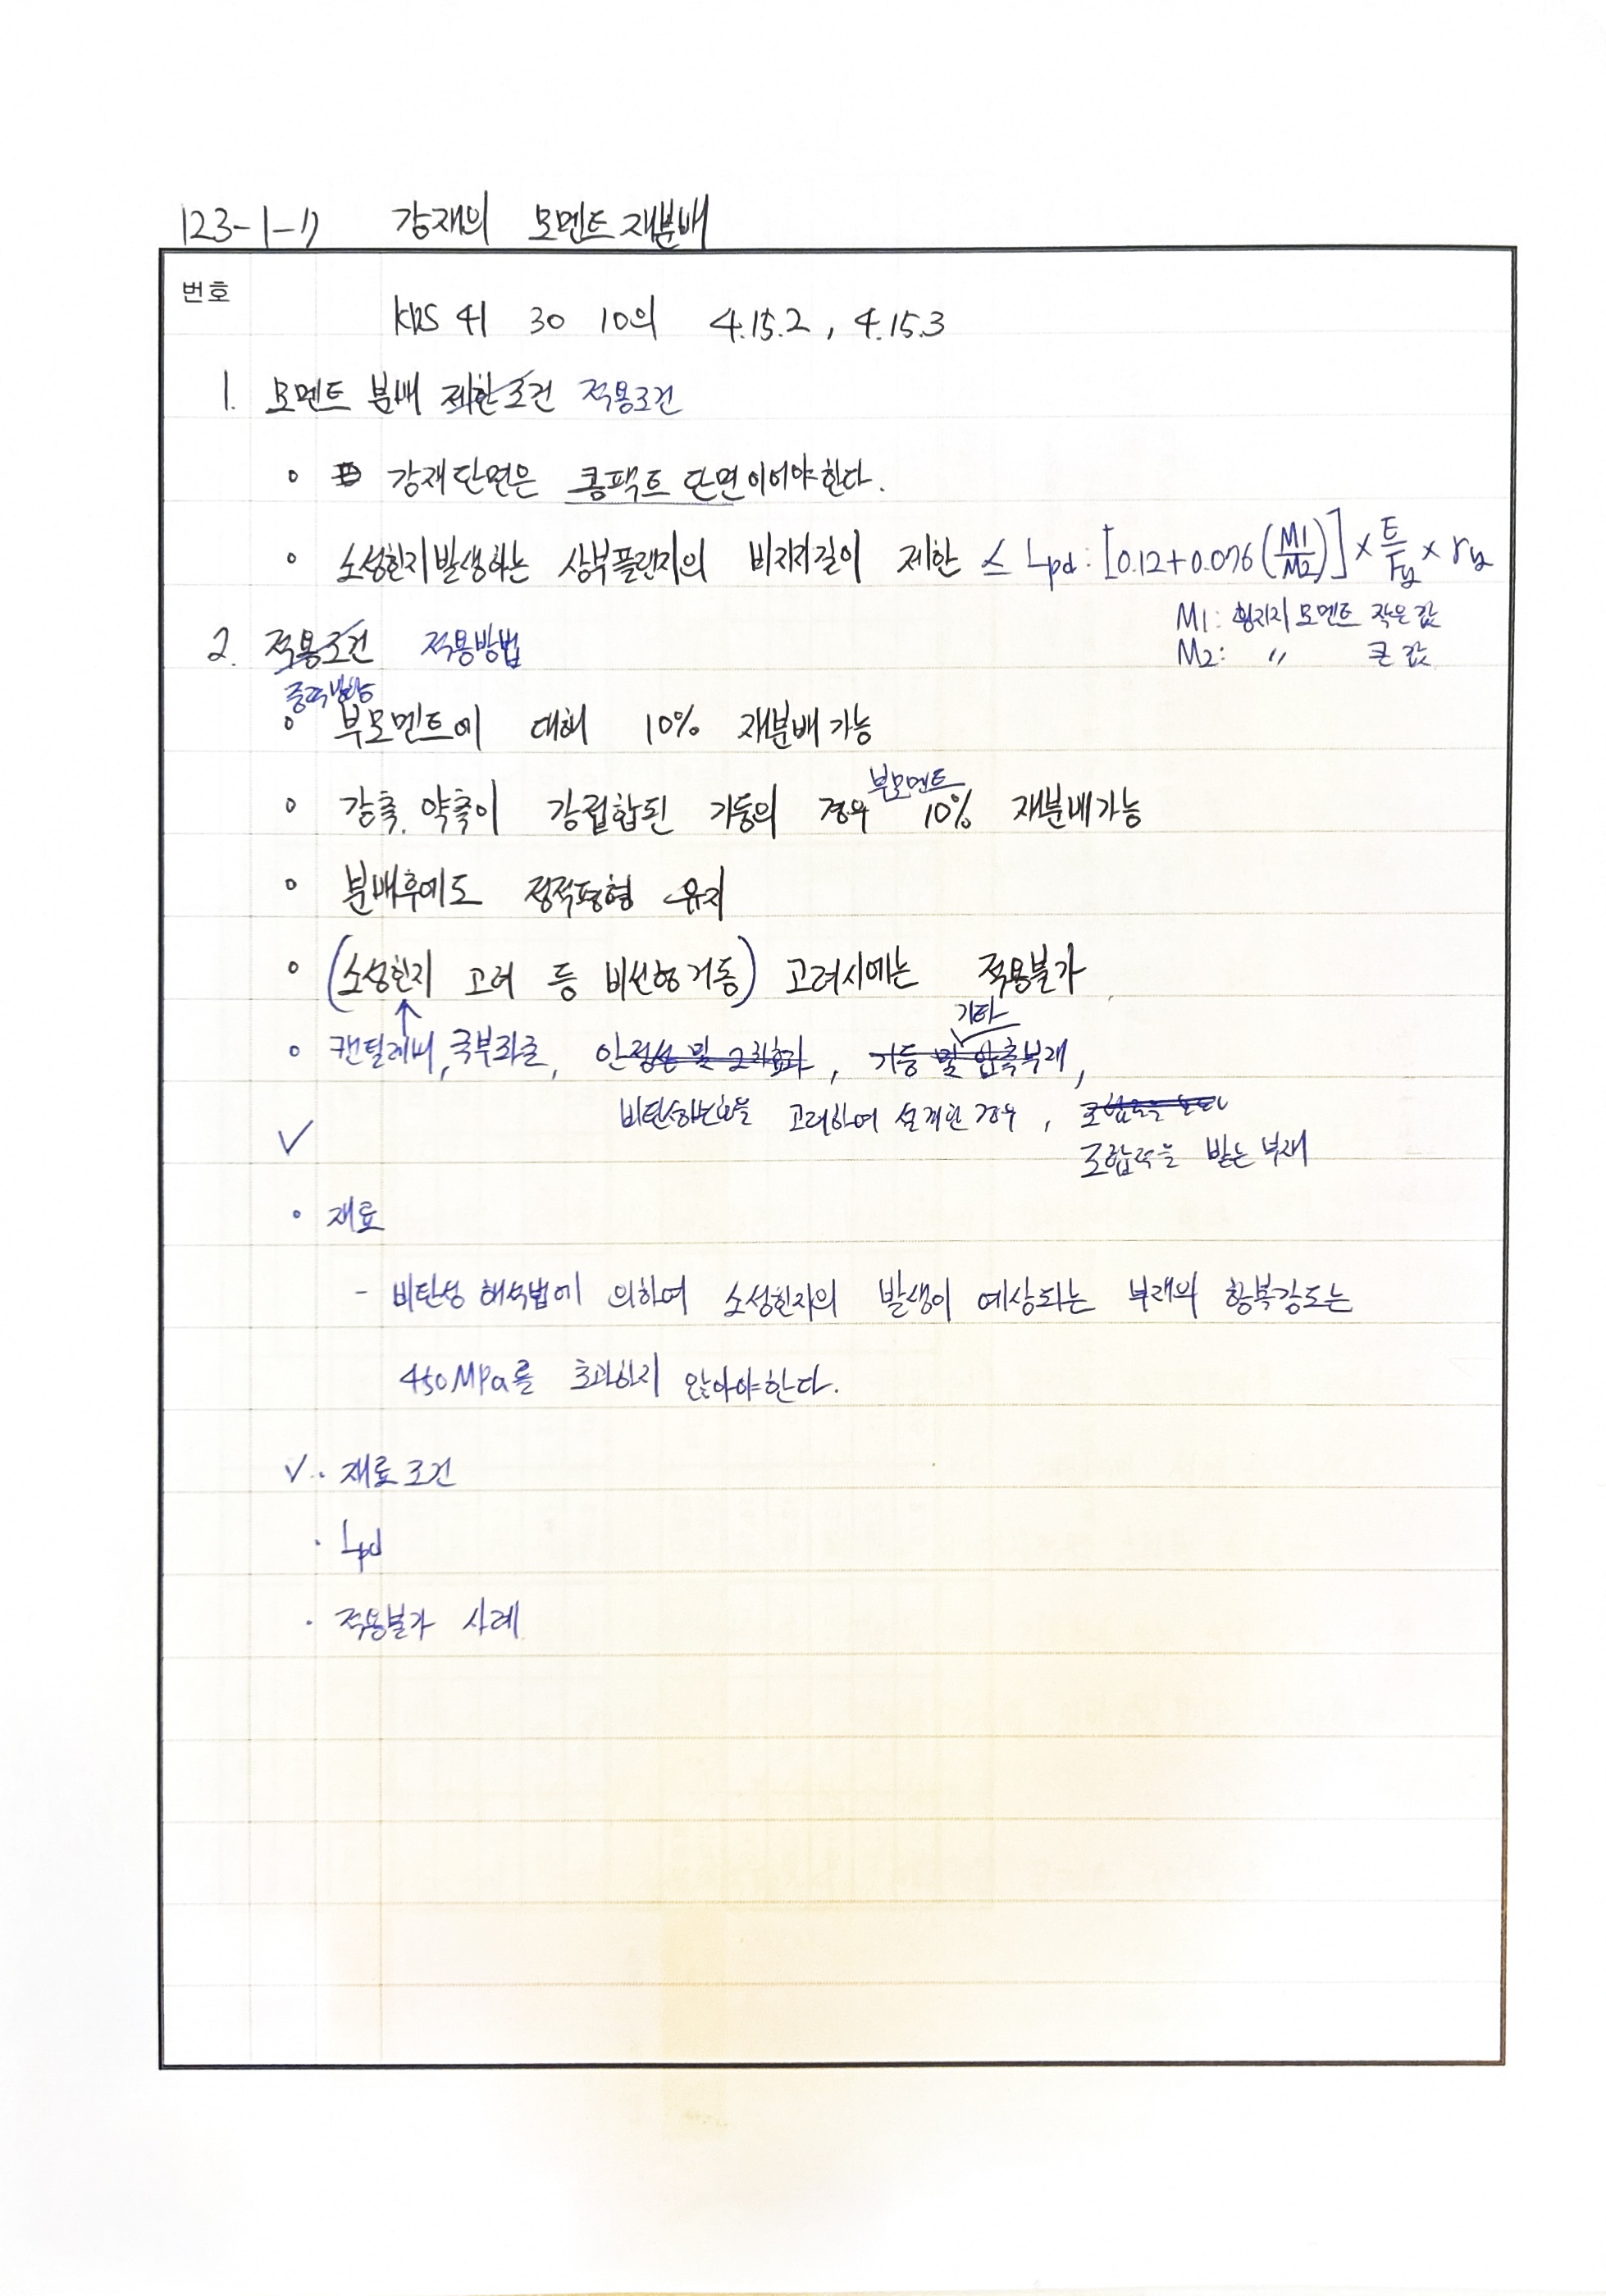 123-1-11 강재의 모멘트 재분배
번호
KDS 41 30 10의 4.15.2, 4.15.3
1. 모멘트 분배 제한조건 적용조건
◦ 강재단면은 콤팩트 단면이어야한다.
◦ 소성힌지발생하는 상부플랜지의 비지지길이 제한 ≤ Lpd : [0.12+0.076(M1/M2)] × E/Fy × ry
M1: 횡지지 모멘트 작은 값
M2: 〃 큰 값
2. 적용조건 적용방법
중력방향
◦ 부모멘트에 대해 10% 재분배 가능
부모멘트
◦ 강축, 약축이 강접합된 기둥의 경우 10% 재분배가능
◦ 분배후에도 정적평형 유지
◦ (소성힌지 고려 등 비선형거동) 고려시에는 적용불가
기타
◦ 캔틸레버, 국부좌굴, 안정성 및 2차효과, 기둥 및 압축부재,
고려하여 설계한 경우,
조합력을 받는 부재
◦ 재료
- 비탄성 해석법에 의하여 소성힌지의 발생이 예상되는 부재의 항복강도는
450MPa를 초과하지 않아야한다.
✓· 재료조건
· Lpd
· 적용불가 사례